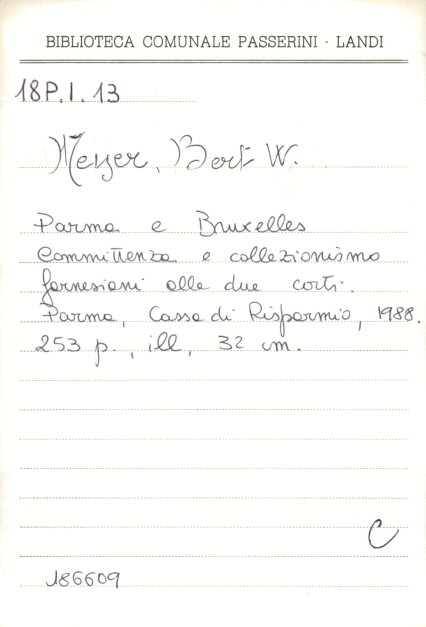 BIBLIOTECA COMUNALE PASSERINI - LANDI
18P.I.13
Meyer, Bert W.
Parma e Bruxelles
Committenza e collezionismo
farnesiani alle due corti.
Parma, Cassa di Risparmio, 1988.
253 p., ill, 32 cm.
C
186609